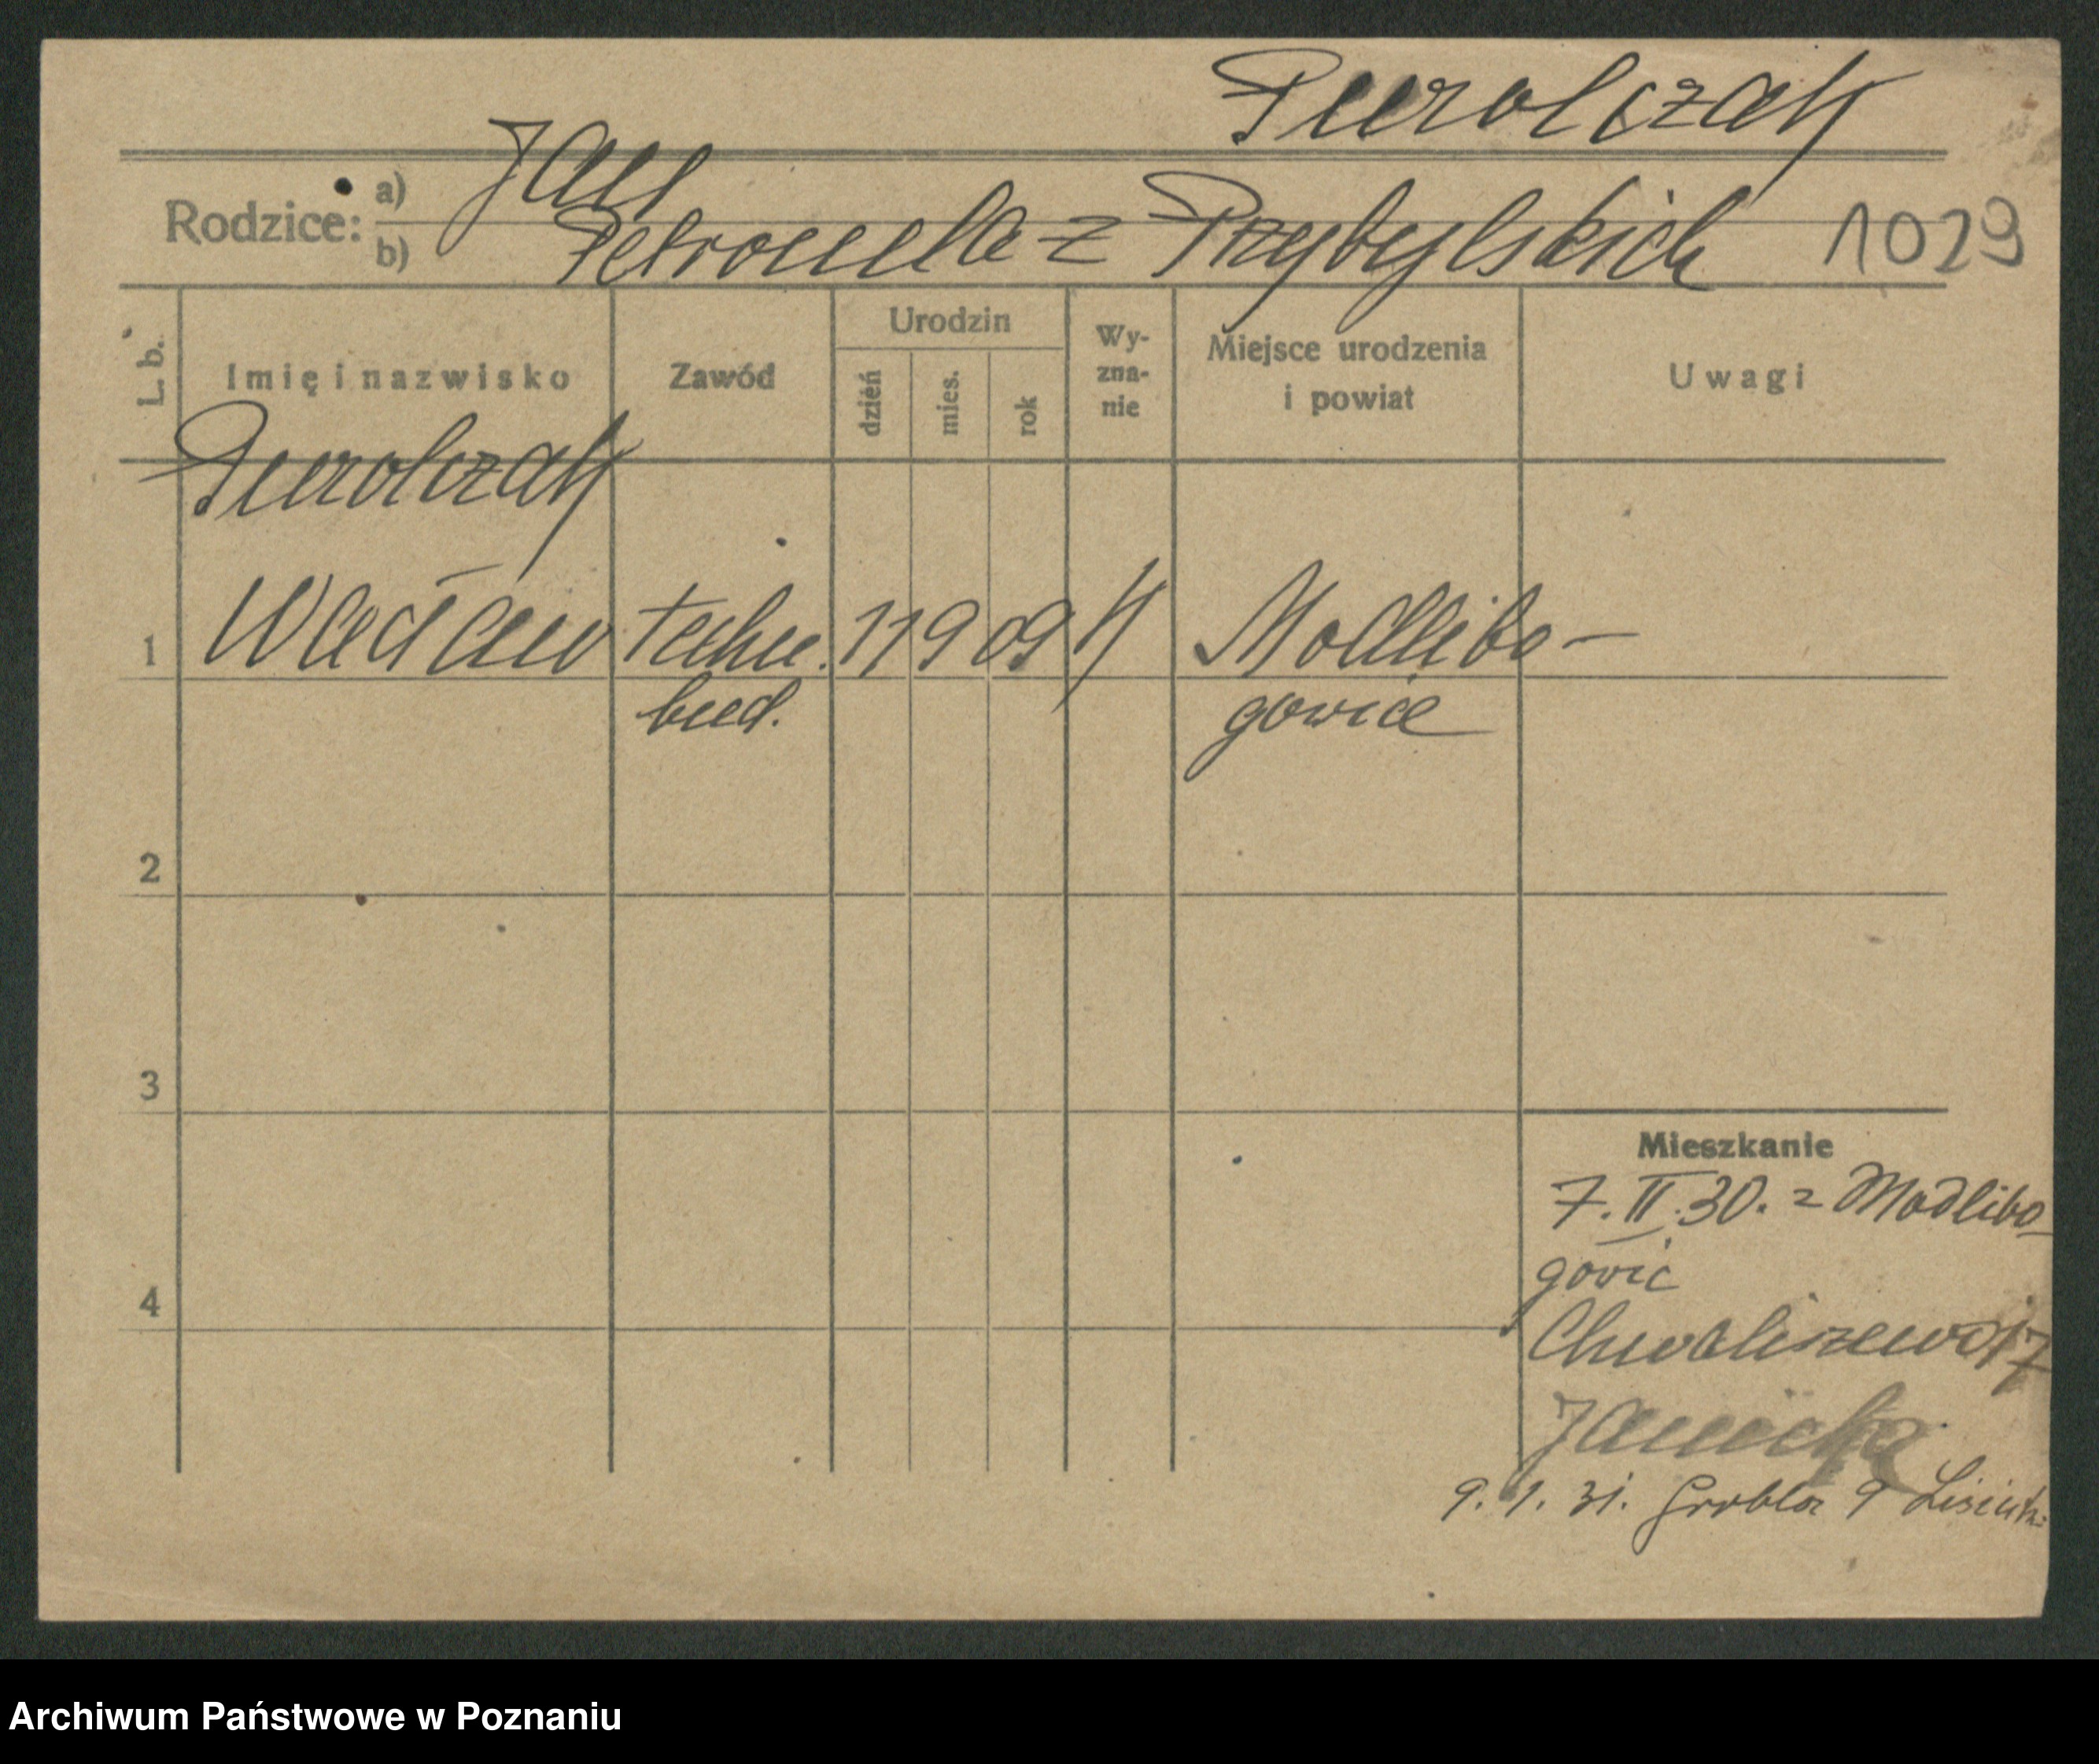 Pierolczak
Rodzice: a) Jan
b) Petronella z Przybylskich 1029
L. b. Imię i nazwisko Zawód Urodzin dzień mies. rok Wy-zna-nie Miejsce urodzenia i powiat Uwagi
Pierolczak
1 Wacław techn. 11 9 09 k Modlibo-
bud. gowice
2
3
Mieszkanie
7.II.30. z Modlibo
4 gowic
Chwaliszewo 17
9. 1. 31. Grobla 9
Archiwum Państwowe w Poznaniu